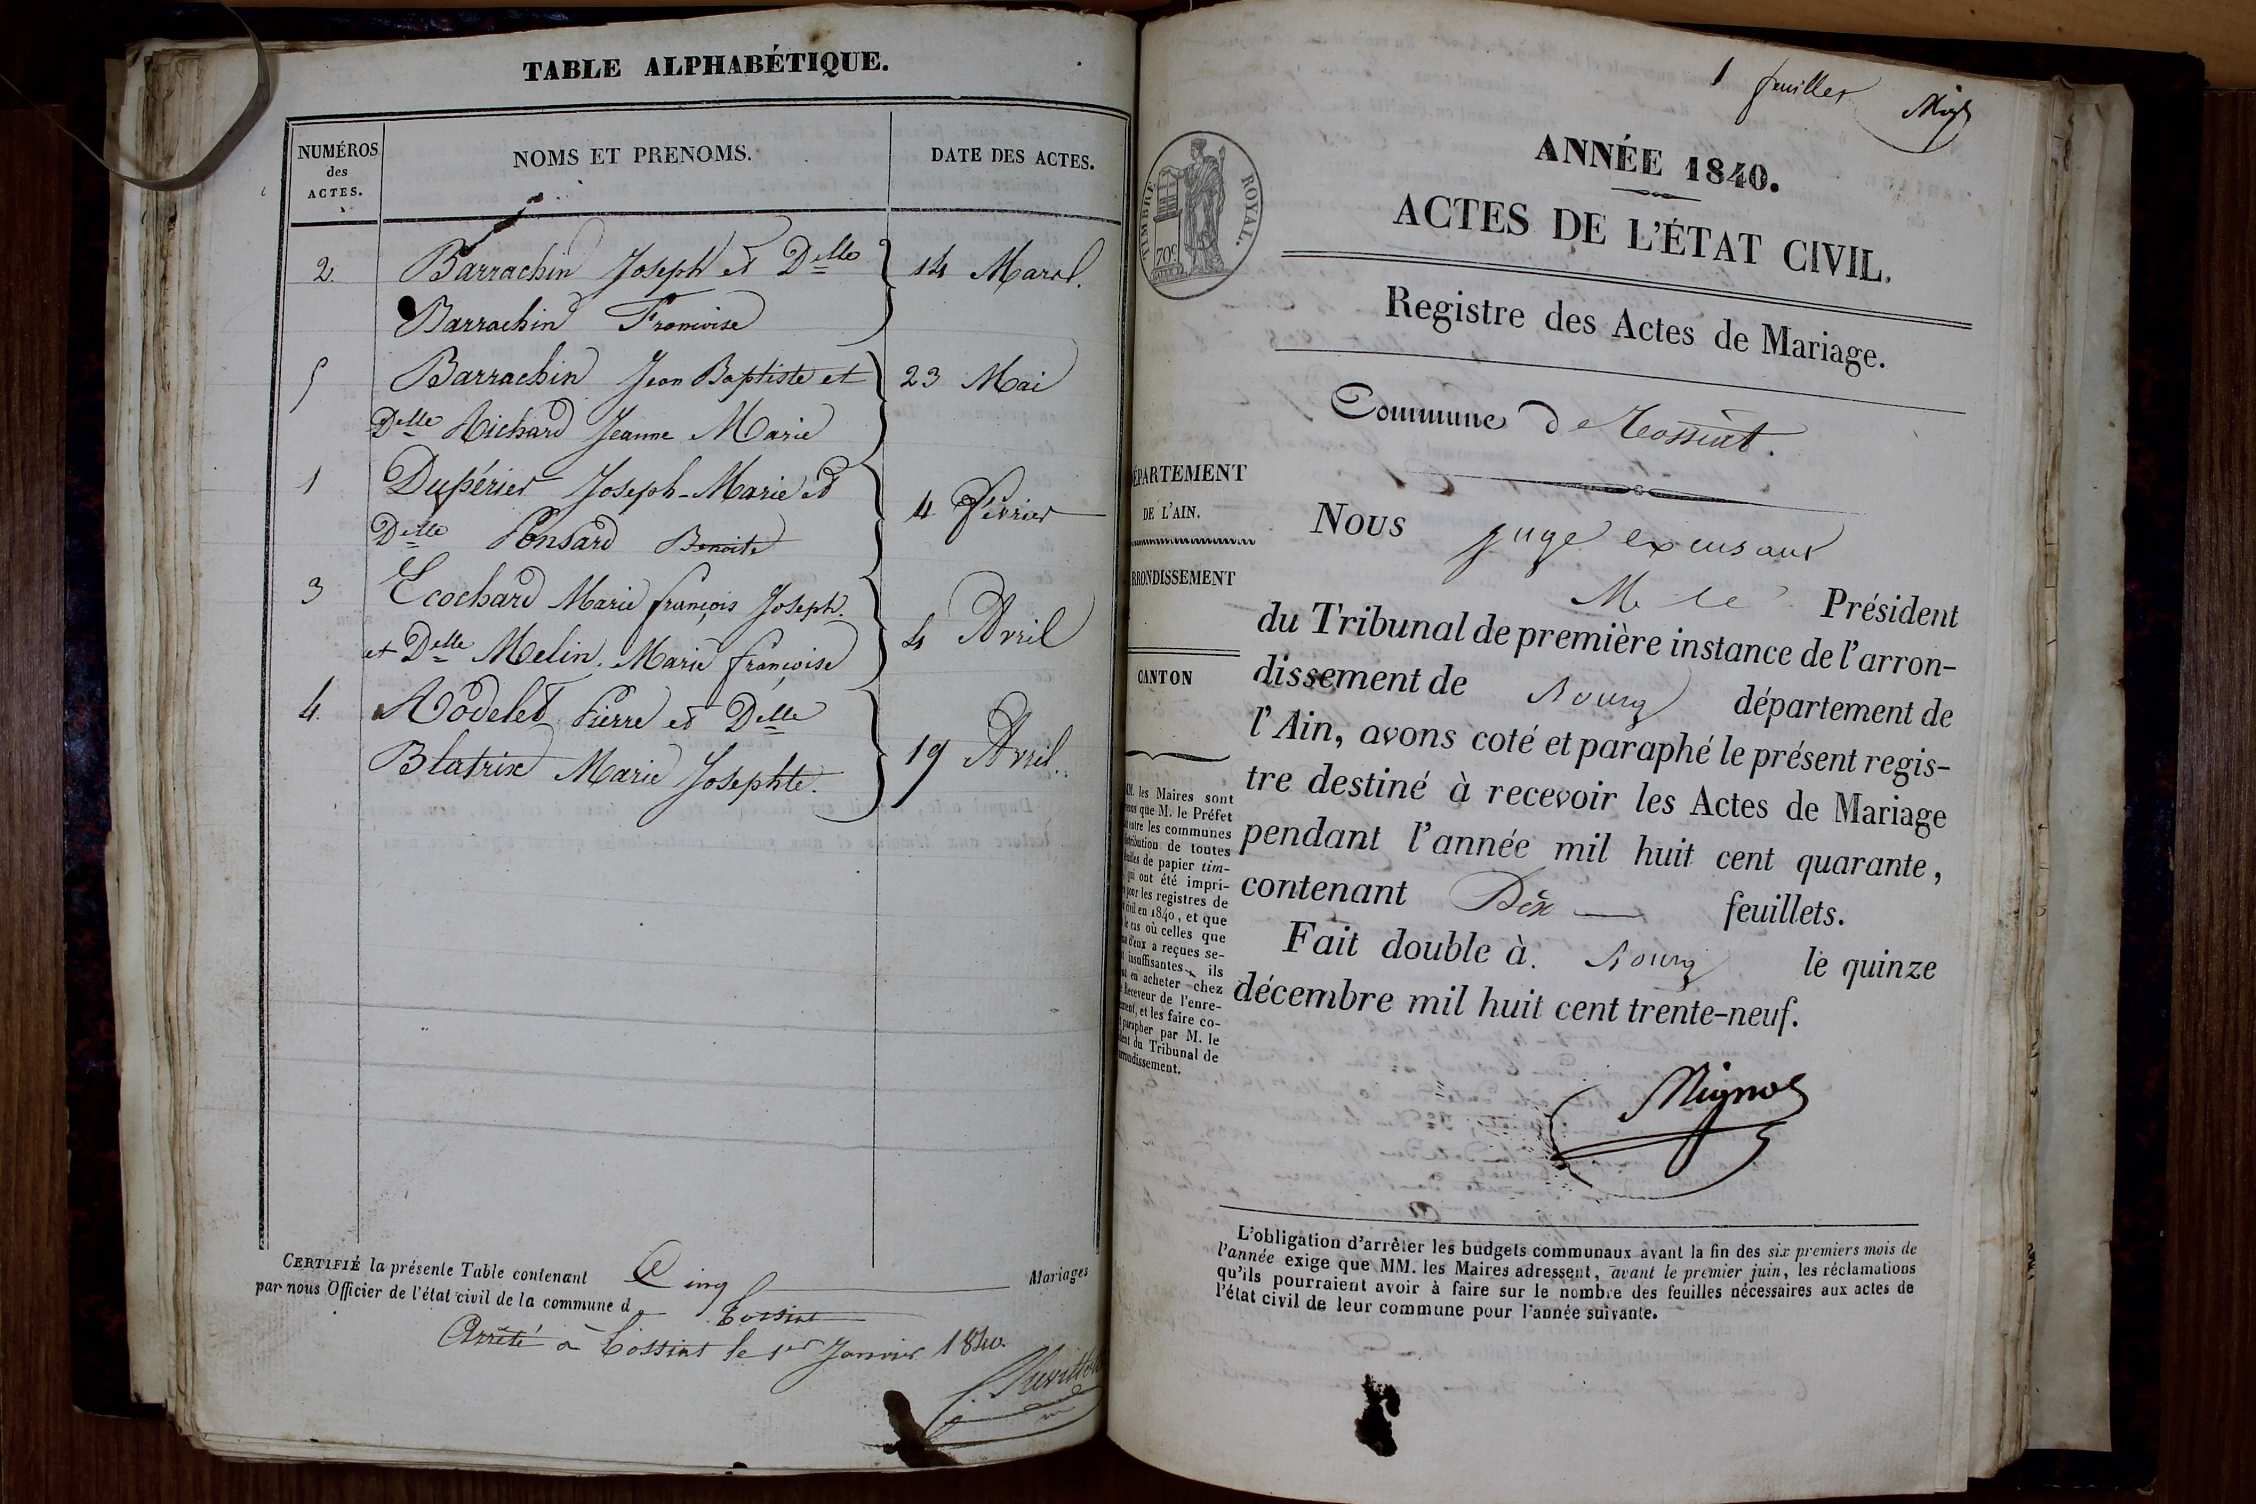 TABLE ALPHABÉTIQUE.
NUMÉROS
des
ACTES.
NOMS ET PRENOMS.
DATE DES ACTES.
2. Barrachin Joseph et Delle 14 Mars.
Barrachin Francoise
5 Barrachin Jean Baptiste et 23 Mai
Delle Richard Jeanne Marie
1 Dupérier Joseph-Marie et
4 Février
Delle Ponsard Benoite
3 Ecochard Marie françois Joseph.
4 Avril
et Delle Melin. Marie françoise
4. Rodelet Pierre et Delle
19 Avril.
Blatrix Marie Josephte.
CERTIFIÉ la présente Table contenant Cinq Mariages
par nous Officier de l'état civil de la commune de Tossiat
Arrêté à Tossiat le 1er Janvier 1840.
1 feuillet
ANNÉE 1840.
ACTES DE L'ÉTAT CIVIL.
TIMBRE ROYAL.
70c
Registre des Actes de Mariage.
Commune de Tossiat.
ÉPARTEMENT
DE L'AIN.
RRONDISSEMENT
CANTON
Nous juge
M. le Président
du Tribunal de première instance de l'arron-
dissement de Bourg département de
l'Ain, avons coté et paraphé le présent regis-
tre destiné à recevoir les Actes de Mariage
pendant l'année mil huit cent quarante,
contenant Dix feuillets.
Fait double à Bourg le quinze
décembre mil huit cent trente-neuf.
Mignot
les Maires sont
que M. le Préfet
entre les communes
de toutes
de papier tim-
qui ont été impri-
pour les registres de
civil en 1840, et que
le cas où celles que
d'eux a reçues se-
insuffisantes, ils
en acheter chez
Receveur de l'enre-
et les faire co-
parapher par M. le
du Tribunal de
L'obligation d'arrêter les budgets communaux avant la fin des six premiers mois de
l'année exige que MM. les Maires adressent, avant le premier juin, les réclamations
qu'ils pourraient avoir à faire sur le nombre des feuilles nécessaires aux actes de
l'état civil de leur commune pour l'année suivante.